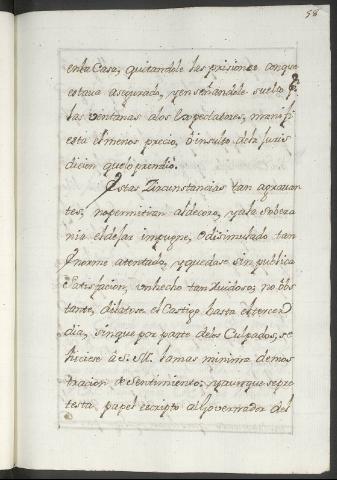 58
enla Casa, quitandole las prisiones conque
estava asegurado, yenseñandole suelto p.r
las ventanas alos Expectadores, manifi
esta elmenos precio, ò insulto dela Juris
dicion quelo prendiò.
Estas Circunstancias tan agravan
tes, nopermitian aldecoro, yala Sobera
nia eldejar impugne, ô disimulado tan
Ynorme atentado, yquedase sin publica
Satisfacion, unhecho tan Ruidoso; no obs
tante, dilatose el Castigo hasta eltercer
dia, sinque por parte delos Culpados, se
hiciese à S. M. lamas minima demos
tracion de Sentimiento; yaunque sepre
testa, papel escripto alGovernador del